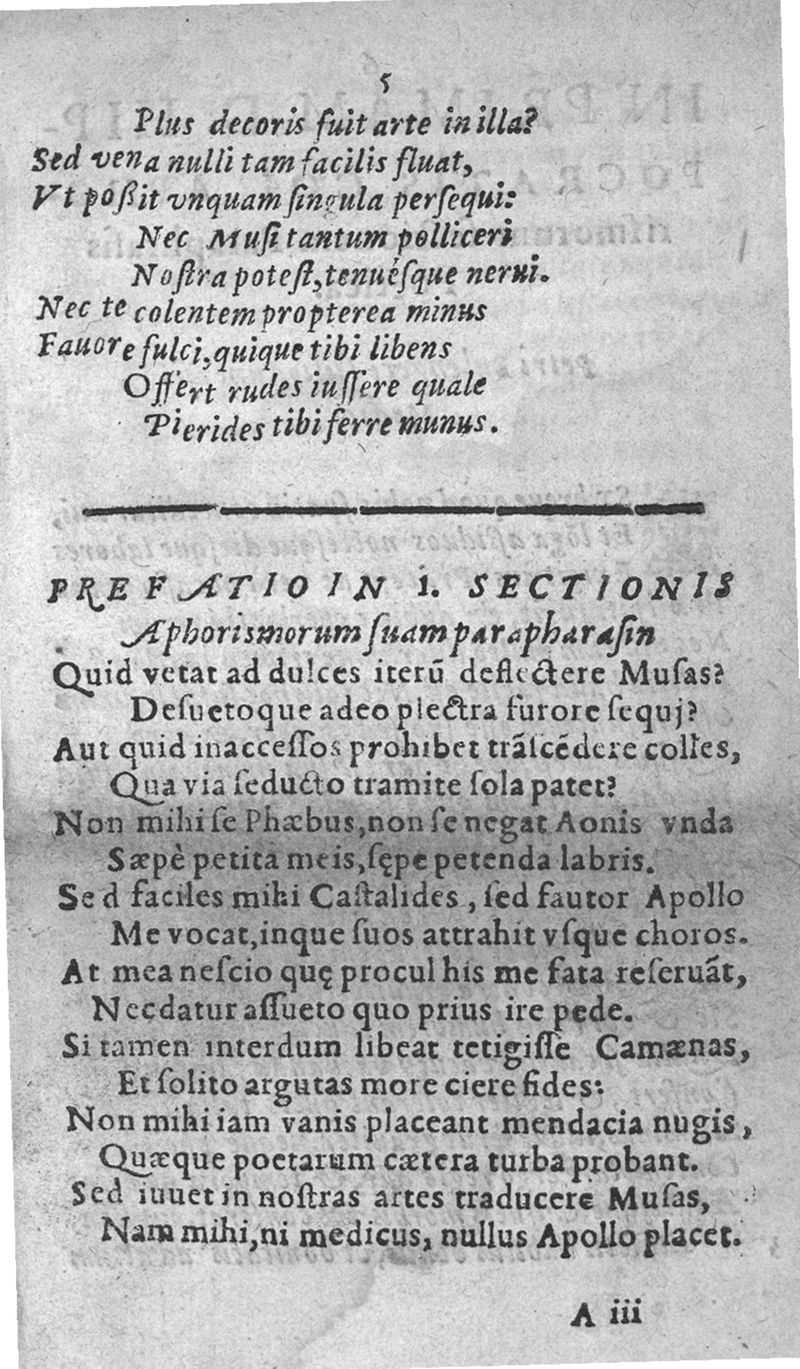 5
Plus decoris fuit arte in illa?
Sed vena nulli tam facilis fluat,
Vt poßit vnquam singula persequi:
Nec Musi tantum polliceri
Nostra potest, tenuésque nerui.
Nec te colentem propterea minus
Fauore fulci, quique tibi libens
Offert rudes iussere quale
Pierides tibi ferre munus.
PRÆFATIO IN 1. SECTIONIS
Aphorismorum suam parapharasin
Quid vetat ad dulces iterū deflectere Musas?
Desuetoque adeo plectra furore sequj?
Aut quid inaccessos prohibet trāscēdere colles,
Qua via seducto tramite sola patet?
Non mihi se Phæbus, non se negat Aonis vnda
Sæpè petita meis, sępe petenda labris.
Sed faciles mihi Castalides, sed fautor Apollo
Me vocat, inque suos attrahit vsque choros.
At mea nescio quę procul his me fata reseruāt,
Nec datur assueto quo prius ire pede.
Si tamen interdum libeat tetigisse Camænas,
Et solito argutas more ciere fides:
Non mihi iam vanis placeant mendacia nugis,
Quæque poetarum cætera turba probant.
Sed iuuet in nostras artes traducere Musas,
Nam mihi, ni medicus, nullus Apollo placet.
A iii